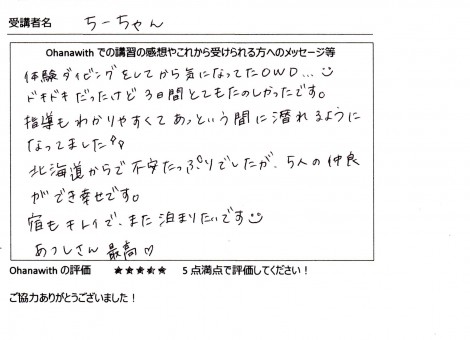 受講者名 ちーちゃん
Ohanawith での講習の感想やこれから受けられる方へのメッセージ等
体験ダイビングをしてから気になってたOWD…☺
ドキドキだったけど3日間とてもたのしかったです。
指導もわかりやすくてあっという間に潜れるように
なってました!!
北海道からで不安たっぷりでしたが、5人の仲良
ができ幸せです。
宿もキレイで、また泊まりたいです☺
あつしさん 最高♡
Ohanawith の評価 ★★★★★ 5 点満点で評価してください！
ご協力ありがとうございました！